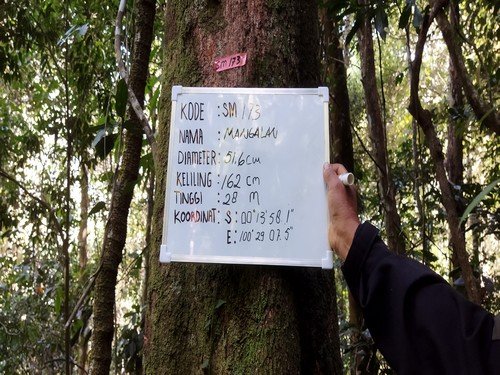 Sm 173
KODE : SM 173
NAMA : MANGALAN
DIAMETER: 51,6 cm
KELILING : 162 cm
TINGGI : 28 M
KOORDINAT: S : 00°13'58.1"
E : 100°29 07.5"